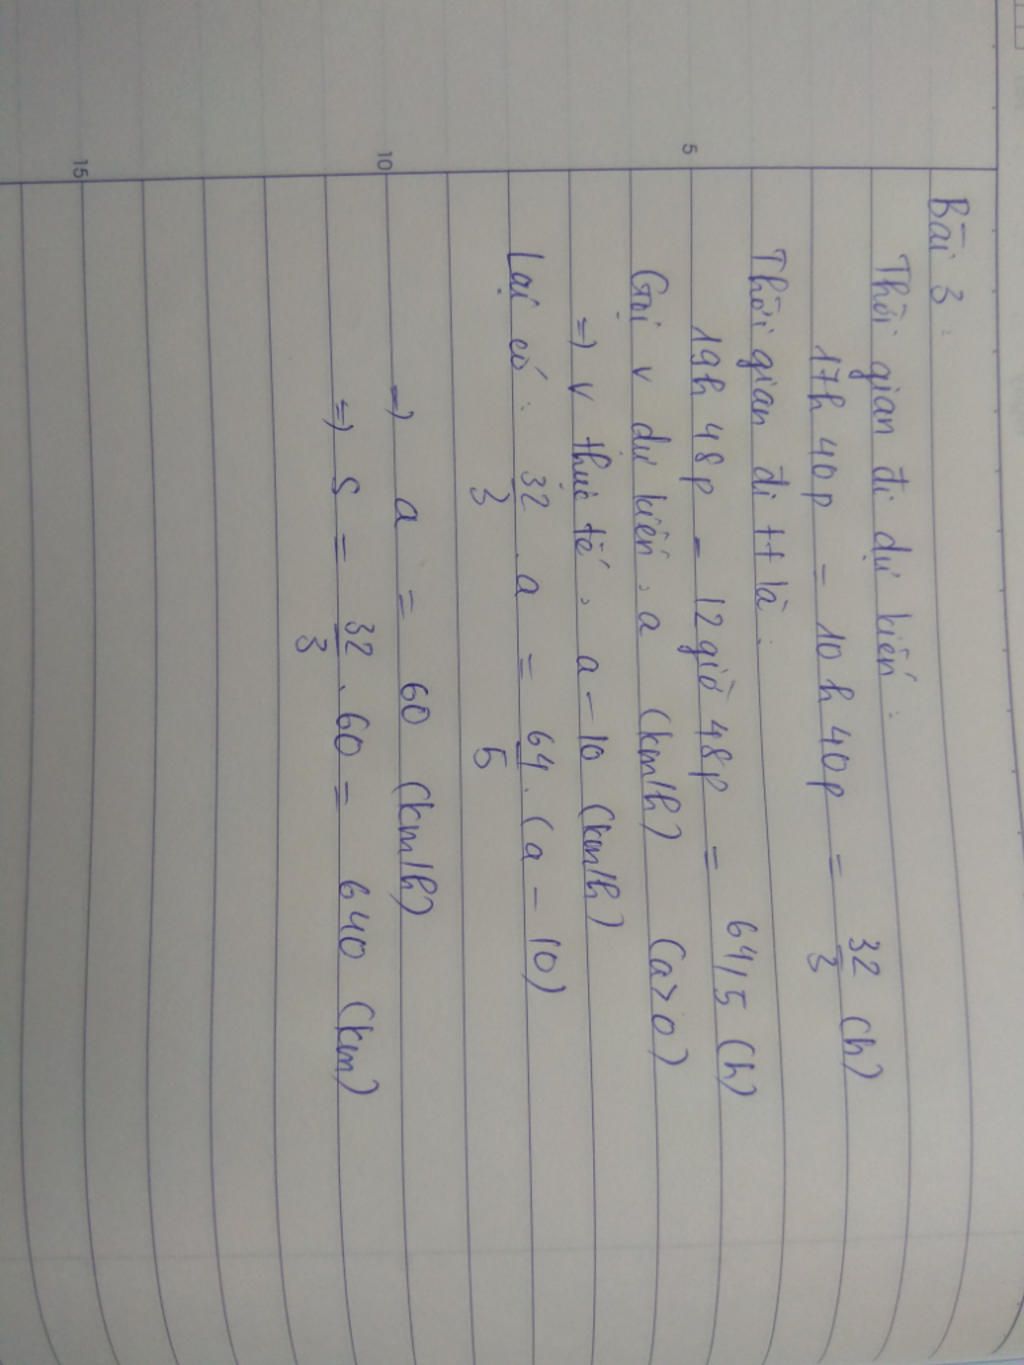 Bài 3:
Thời gian đi dự kiến:
17h 40p = 10h 40p = 32/3 (h)
Thời gian đi tt là:
19h 48p = 12 giờ 48p = 64/5 (h)
Gọi v dự kiến: a (km/h) (a>0)
=> v thực tế: a - 10 (km/h)
Lại có: 32/3 . a = 64/5 . (a - 10)
=> a = 60 (km/h)
=> S = 32/3 . 60 = 640 (km)
5
10
15